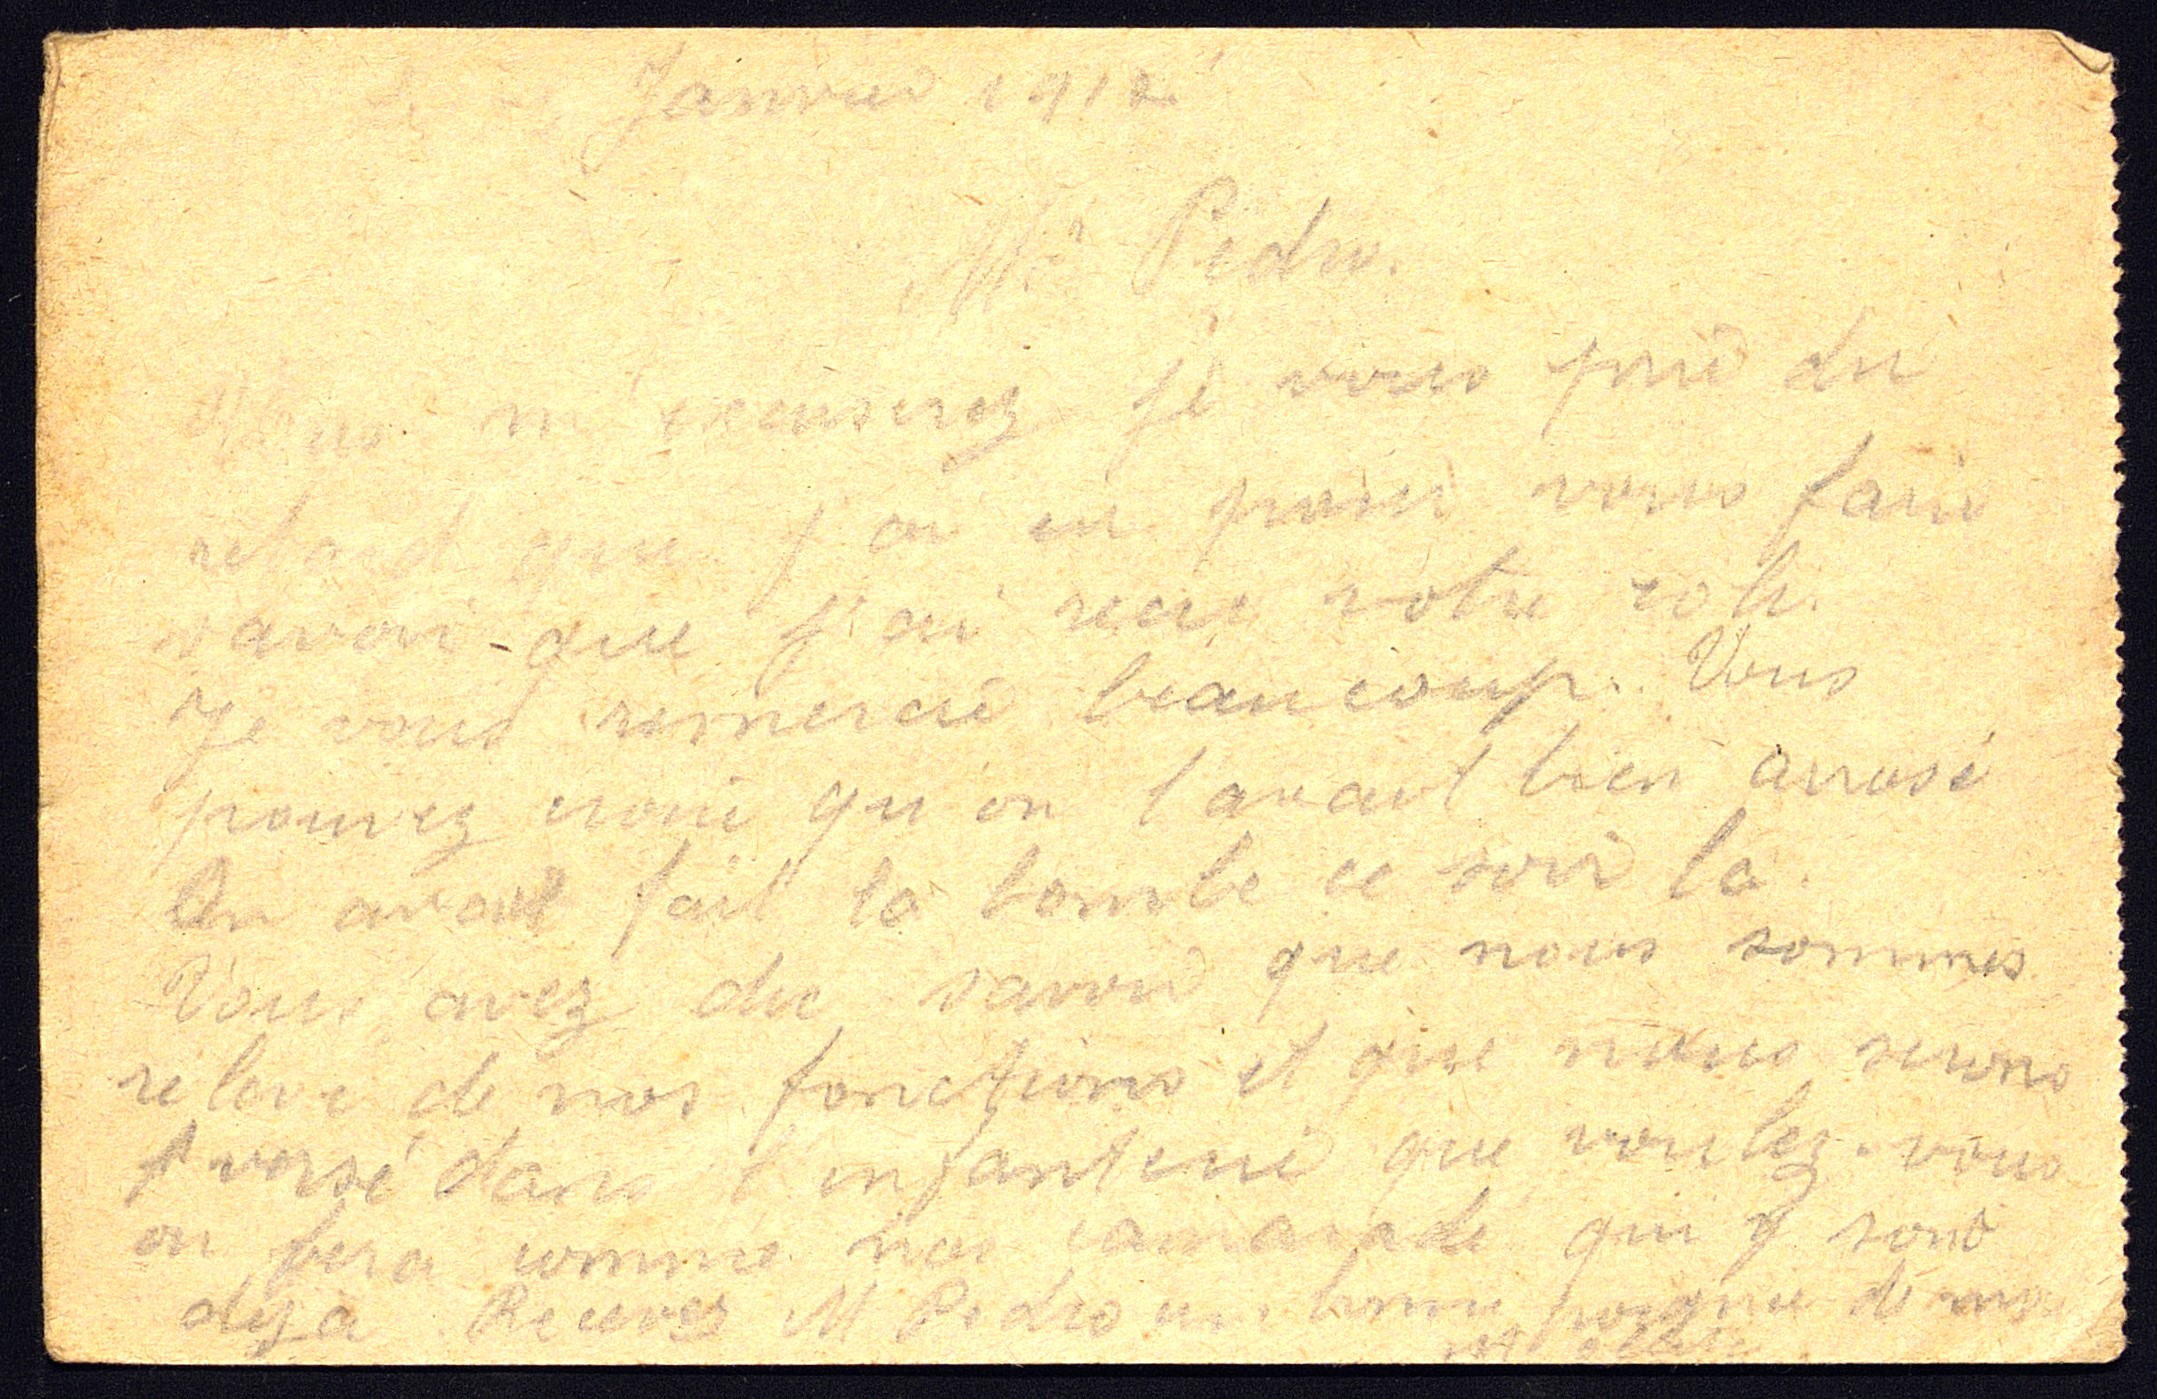 Janvier 1912
Mr Pedro.
Vous m'excuserez je vous prie du
retard que j'ai eu pour vous faire
savoir que j'ai recu votre coli.
Je vous remercie beaucoup. Vous
pouvez croire qu'on l'avait bien arrosé
On avait fait la bombe ce soir la.
Vous avez du savoir que nous sommes
relevé de nos fonctions et que nous serons
versé dans l'infanterie que voulez-vous
on fera comme nos camarade qui y sont
deja Recevez M Pedro une bonne poignee de